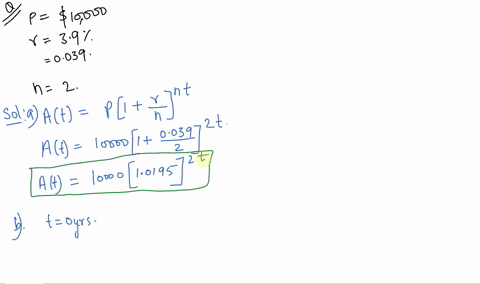 Q P = $10,000
r = 3.9%.
= 0.039.
n = 2.
Sol: a) A(t) = P[1 + r/n]^nt
A(t) = 10000[1 + 0.039/2]^2t.
A(t) = 10000[1.0195]^2t
b). t = 0yrs.